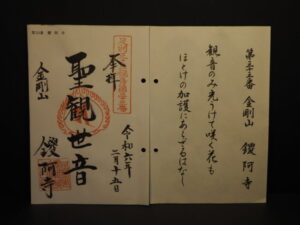 金剛山 鑁阿寺
観音のみ光うけて咲く花も
ほとけの加護にあらざるはなし
奉拝
令和六年二月十五日
聖観世音
金剛山
鑁阿寺